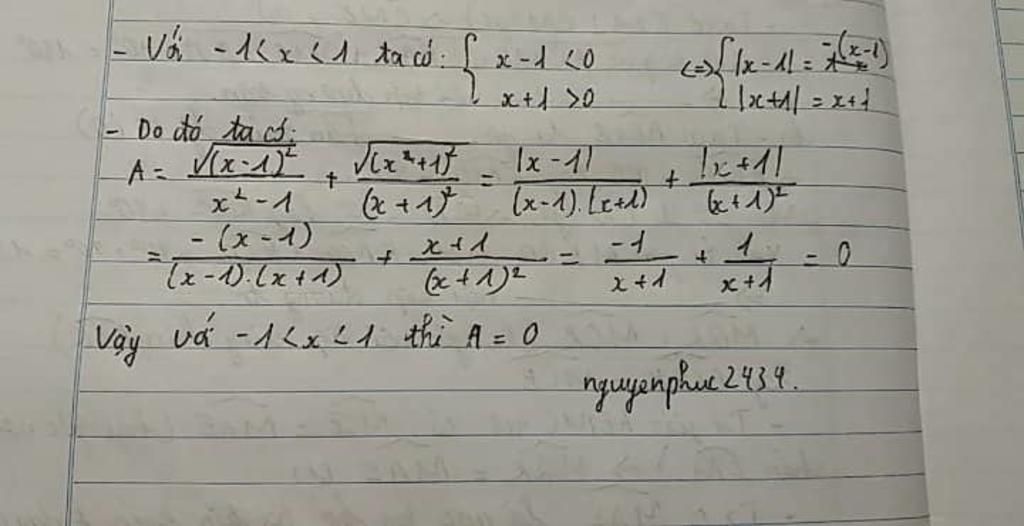 - Với -1 < x < 1 ta có: { x - 1 < 0 <=> { |x-1| = -(x-1)
x + 1 > 0 |x+1| = x+1
- Do đó ta có:
A = √(x-1)² / x² - 1 + √(x+1)² / (x+1)² = |x-1| / (x-1).(x+1) + |x+1| / (x+1)²
= -(x-1) / (x-1).(x+1) + x+1 / (x+1)² = -1 / x+1 + 1 / x+1 = 0
Vậy với -1 < x < 1 thì A = 0
nguyenphuc2434.